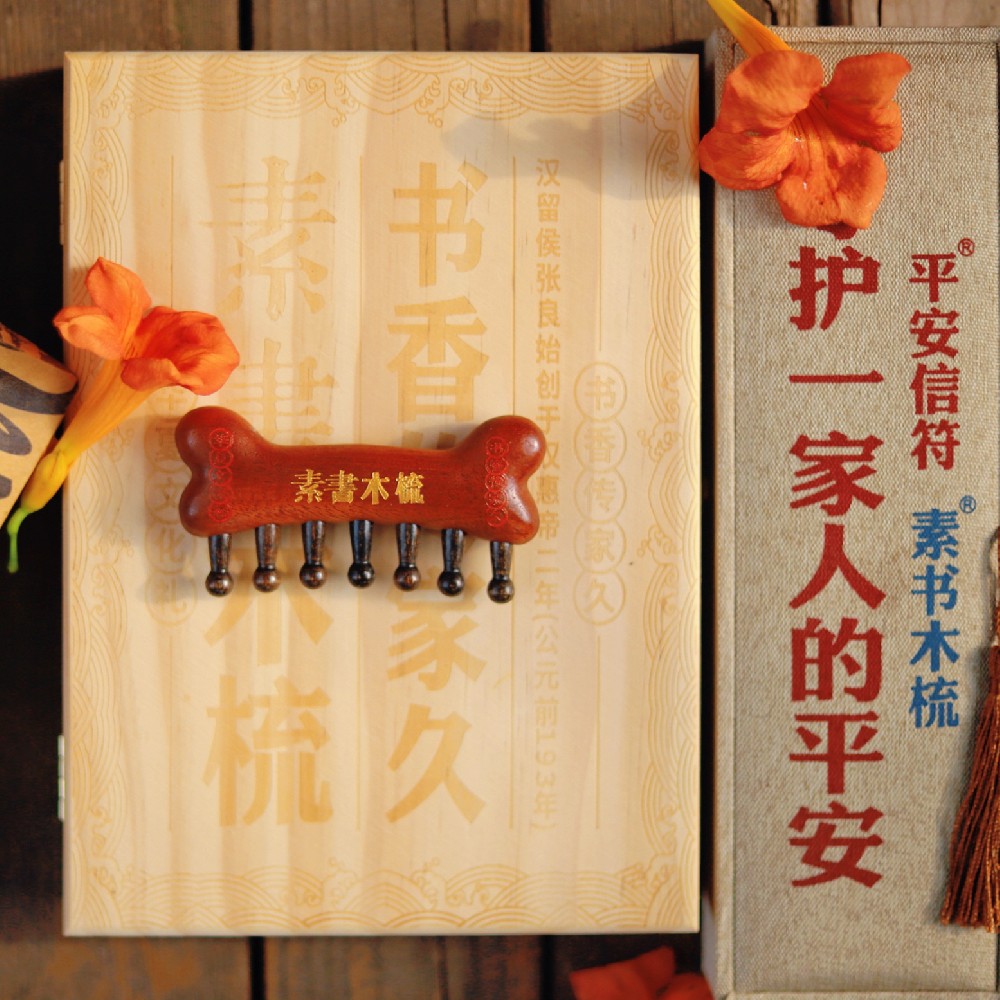 素書木梳
书香传家久
汉留侯张良始创于汉惠帝二年(公元前193年)
书香传家久
素書木梳
护一家人的平安
平安信符®
素书木梳®